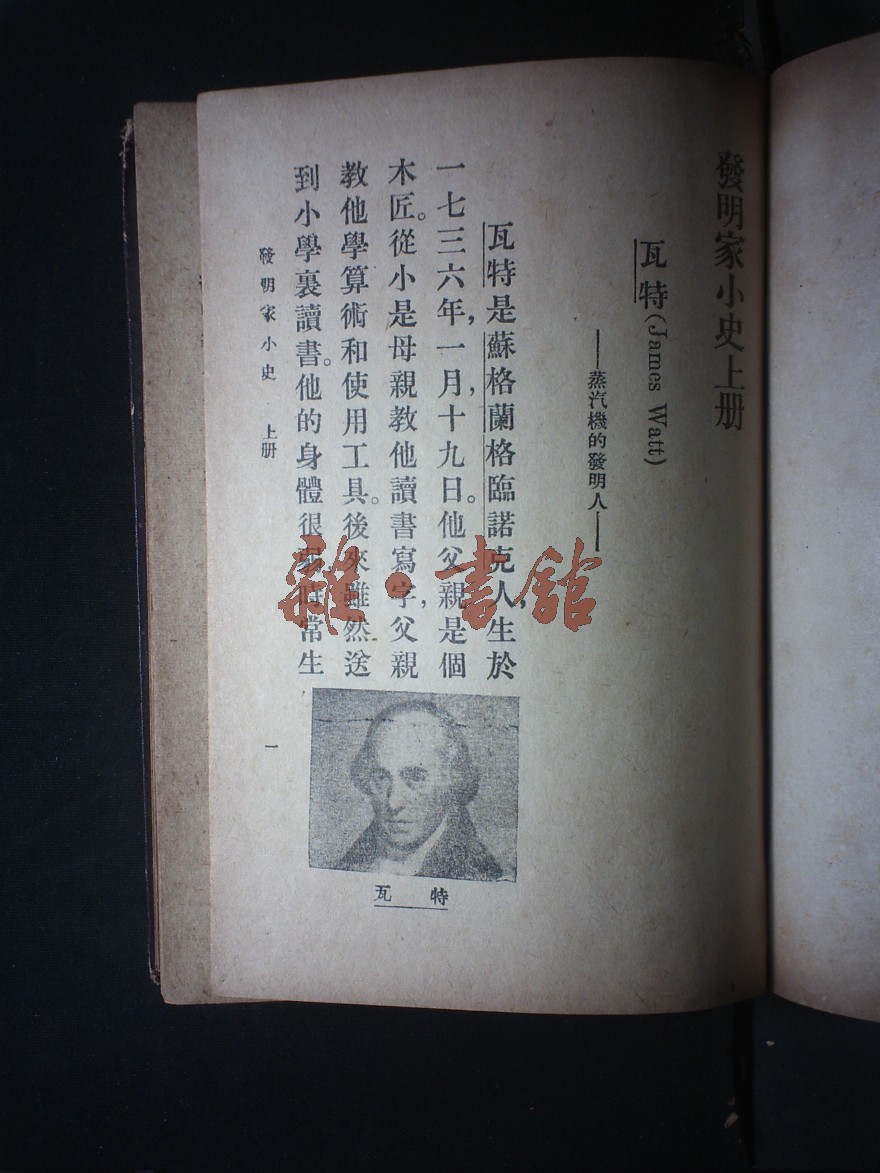 發明家小史上册
瓦特(James Watt)
——蒸汽機的發明人——
瓦特是蘇格蘭格臨諾克人,生於
一七三六年,一月,十九日。他父親是個
木匠。從小是母親教他讀書寫字,父親
教他學算術和使用工具。後來雖然送
到小學裏讀書。他的身體很弱時常生
發明家小史 上册
一
瓦特
雜·書館